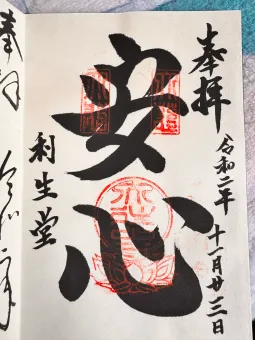 奉拝
令和二年 十一月廿三日
安心
利生堂
奉拝